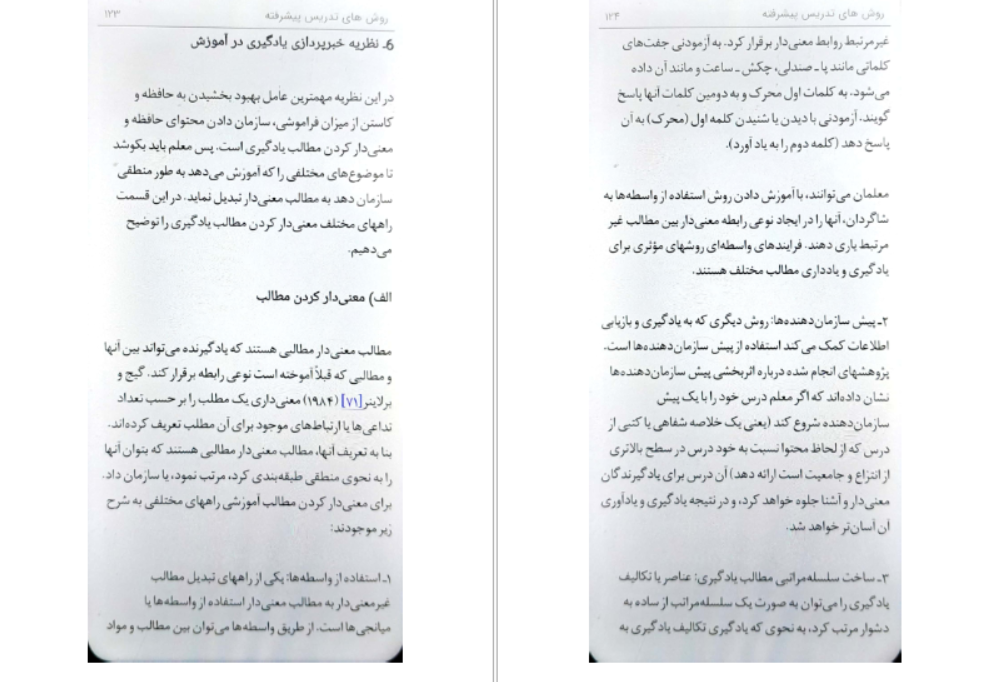 روش های تدریس پیشرفته
۱۲۳
6ـ نظریه خبرپردازی یادگیری در آموزش
در این نظریه مهمترین عامل بهبود بخشیدن به حافظه و
کاستن از میزان فراموشی، سازمان دادن محتوای حافظه و
معنی‌دار کردن مطالب یادگیری است. پس معلم باید بکوشد
تا موضوع‌های مختلفی را که آموزش می‌دهد به طور منطقی
سازمان دهد به مطالب معنی‌دار تبدیل نماید. در این قسمت
راههای مختلف معنی‌دار کردن مطالب یادگیری را توضیح
می‌دهیم.
الف) معنی‌دار کردن مطالب
مطالب معنی‌دار مطالبی هستند که یادگیرنده می‌تواند بین آنها
و مطالبی که قبلاً آموخته است نوعی رابطه برقرار کند. گیج و
برلاینر[۷۱] (۱۹۸۴) معنی‌داری یک مطلب را بر حسب تعداد
تداعی‌ها یا ارتباط‌های موجود برای آن مطلب تعریف کرده‌اند.
بنا به تعریف آنها، مطالب معنی‌دار مطالبی هستند که بتوان آنها
را به نحوی منطقی طبقه‌بندی کرد، مرتب نمود، یا سازمان داد.
برای معنی‌دار کردن مطالب آموزشی راههای مختلفی به شرح
زیر موجودند:
۱ـ استفاده از واسطه‌ها: یکی از راههای تبدیل مطالب
غیرمعنی‌دار به مطالب معنی‌دار استفاده از واسطه‌ها یا
میانجی‌ها است. از طریق واسطه‌ها می‌توان بین مطالب و مواد
روش های تدریس پیشرفته
۱۲۴
غیرمرتبط روابط معنی‌دار برقرار کرد. به آزمودنی جفت‌های
کلماتی مانند پا ـ صندلی، چکش ـ ساعت و مانند آن داده
می‌شود. به کلمات اول محرک و به دومین کلمات آنها پاسخ
گویند. آزمودنی با دیدن یا شنیدن کلمه اول (محرک) به آن
پاسخ دهد (کلمه دوم را به یاد آورد).
معلمان می‌توانند، با آموزش دادن روش استفاده از واسطه‌ها به
شاگردان، آنها را در ایجاد نوعی رابطه معنی‌دار بین مطالب غیر
مرتبط یاری دهند. فرایندهای واسطه‌ای روشهای مؤثری برای
یادگیری و یادداری مطالب مختلف هستند.
۲ـ پیش سازمان‌دهنده‌ها: روش دیگری که به یادگیری و بازیابی
اطلاعات کمک می‌کند استفاده از پیش سازمان‌دهنده‌ها است.
پژوهشهای انجام شده درباره اثربخشی پیش سازمان‌دهنده‌ها
نشان داده‌اند که اگر معلم درس خود را با یک پیش
سازمان‌دهنده شروع کند (یعنی یک خلاصه شفاهی یا کتبی از
درس که از لحاظ محتوا نسبت به خود درس در سطح بالاتری
از انتزاع و جامعیت است ارائه دهد) آن درس برای یادگیرندگان
معنی‌دار و آشنا جلوه خواهد کرد، و در نتیجه یادگیری و یادآوری
آن آسان‌تر خواهد شد.
۳ـ ساخت سلسله‌مراتبی مطالب یادگیری: عناصر یا تکالیف
یادگیری را می‌توان به صورت یک سلسله‌مراتب از ساده به
دشوار مرتب کرد، به نحوی که یادگیری تکالیف یادگیری به